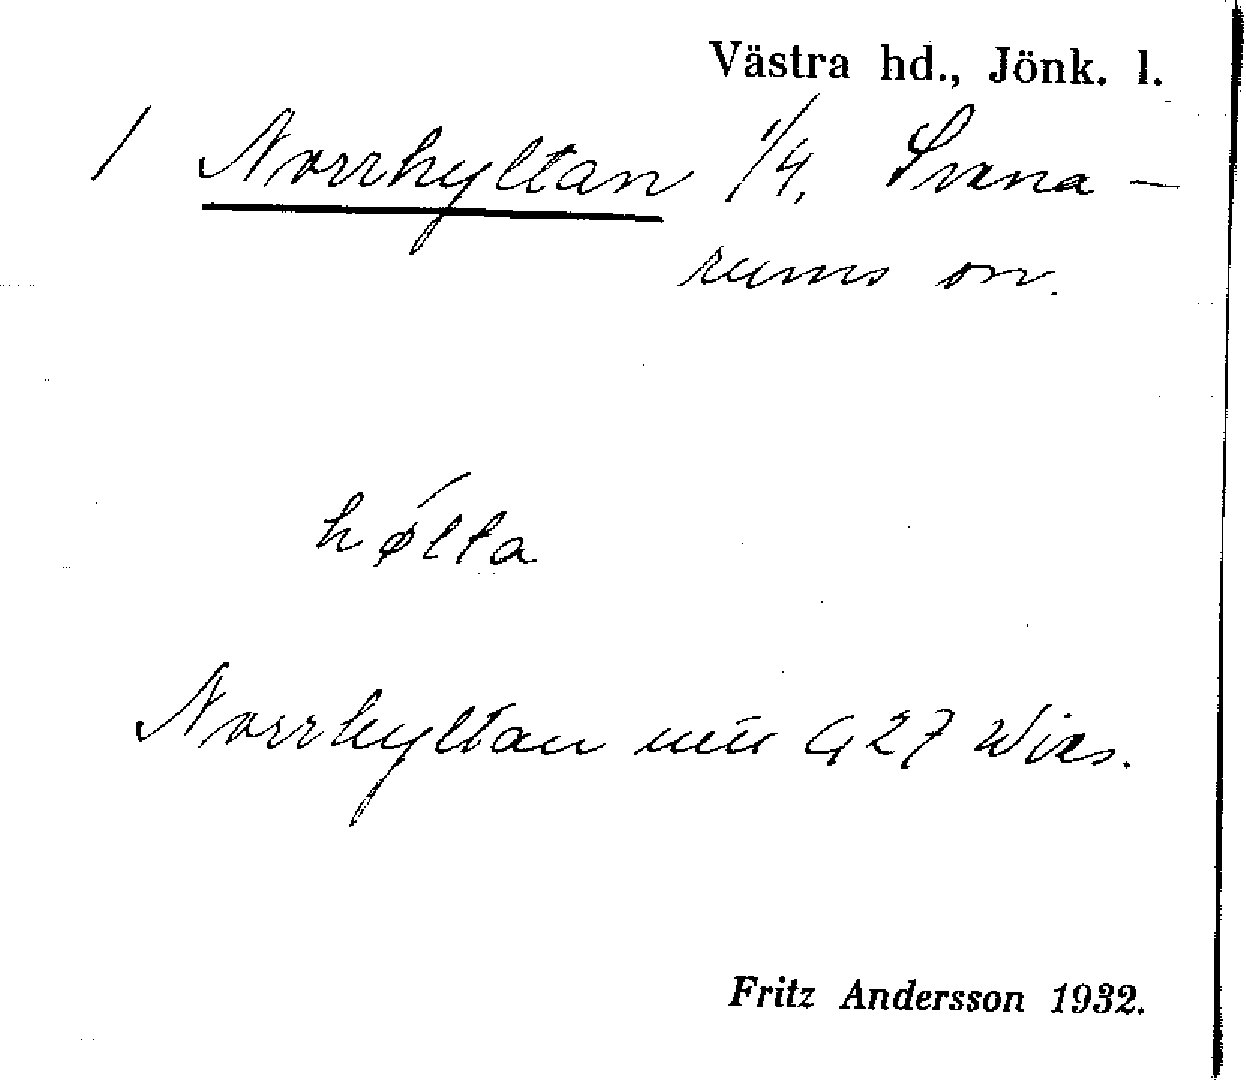 Västra hd., Jönk. l.
/ Norrhyltan 1/4, Svena-
rums sn.
hølta
Norrhyltan G 27 Wies.
Fritz Andersson 1932.